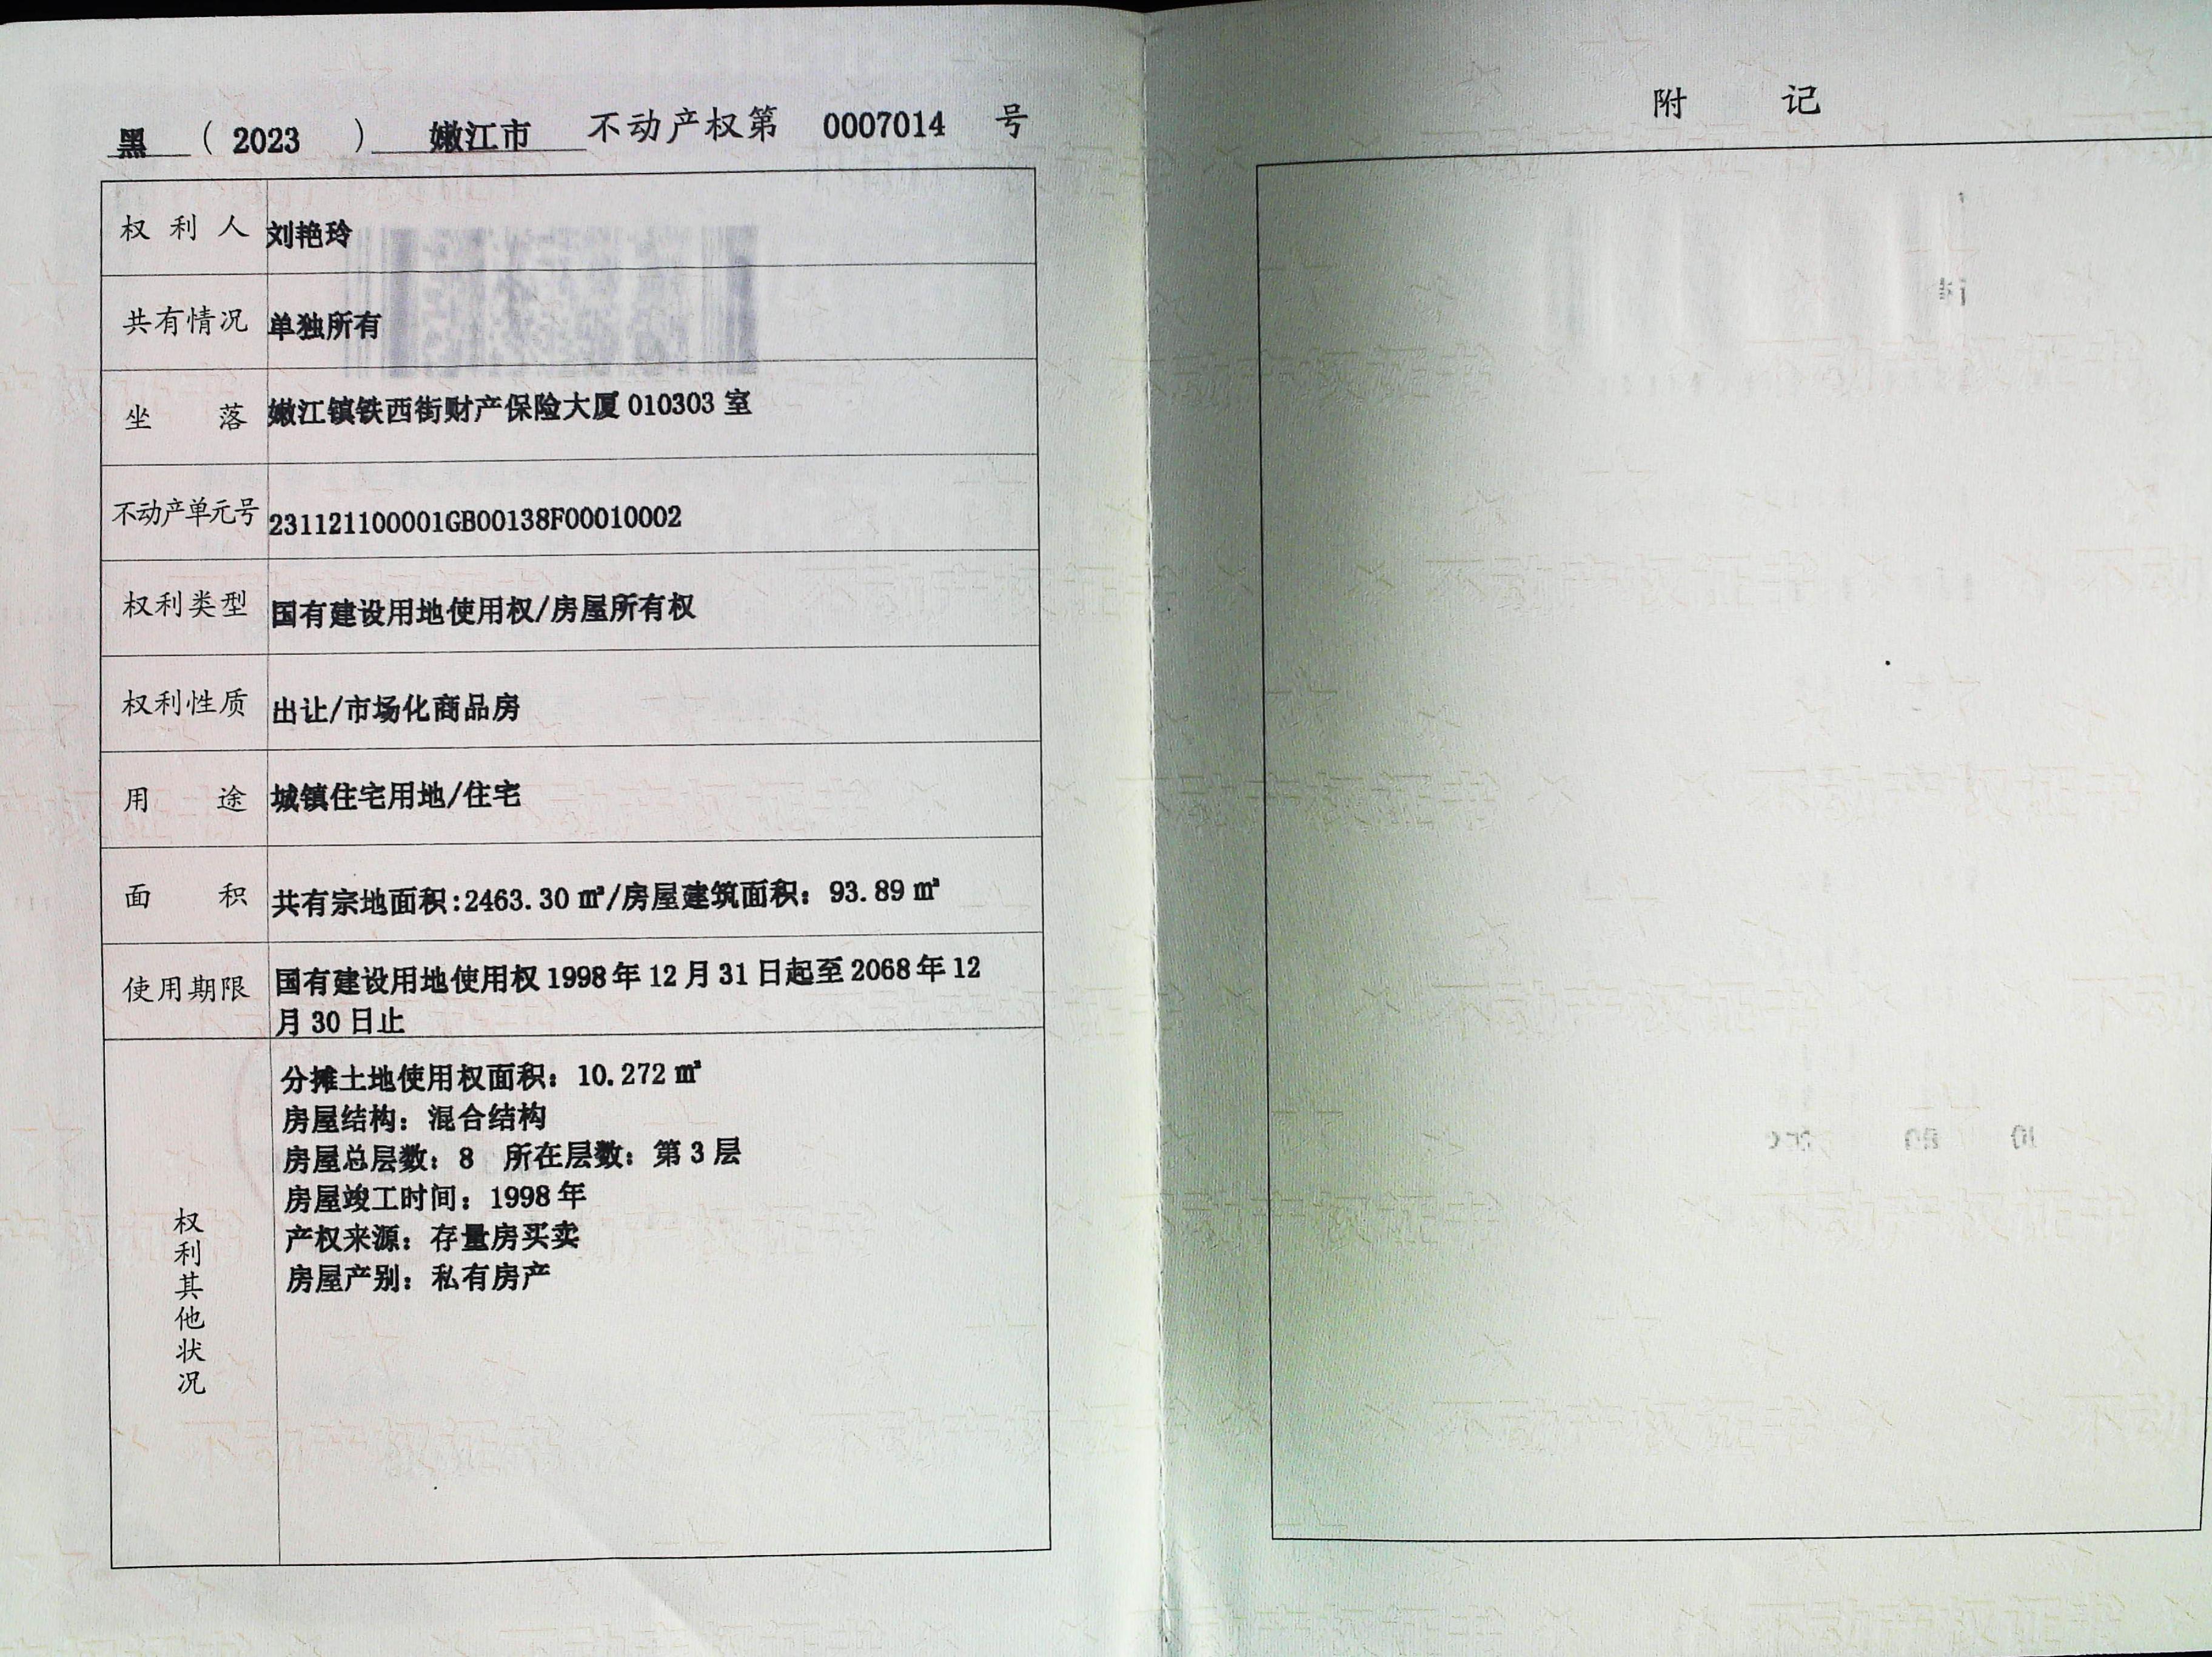 黑 (2023) 嫩江市 不动产权第 0007014 号
权利人 刘艳玲
共有情况 单独所有
坐落 嫩江镇铁西街财产保险大厦 010303 室
不动产单元号 231121100001GB00138F00010002
权利类型 国有建设用地使用权/房屋所有权
权利性质 出让/市场化商品房
用途 城镇住宅用地/住宅
面积 共有宗地面积:2463.30 ㎡/房屋建筑面积：93.89 ㎡
使用期限 国有建设用地使用权 1998 年 12 月 31 日起至 2068 年 12
月 30 日止
权利其他状况
分摊土地使用权面积：10.272 ㎡
房屋结构：混合结构
房屋总层数：8 所在层数：第 3 层
房屋竣工时间：1998 年
产权来源：存量房买卖
房屋产别：私有房产
附记